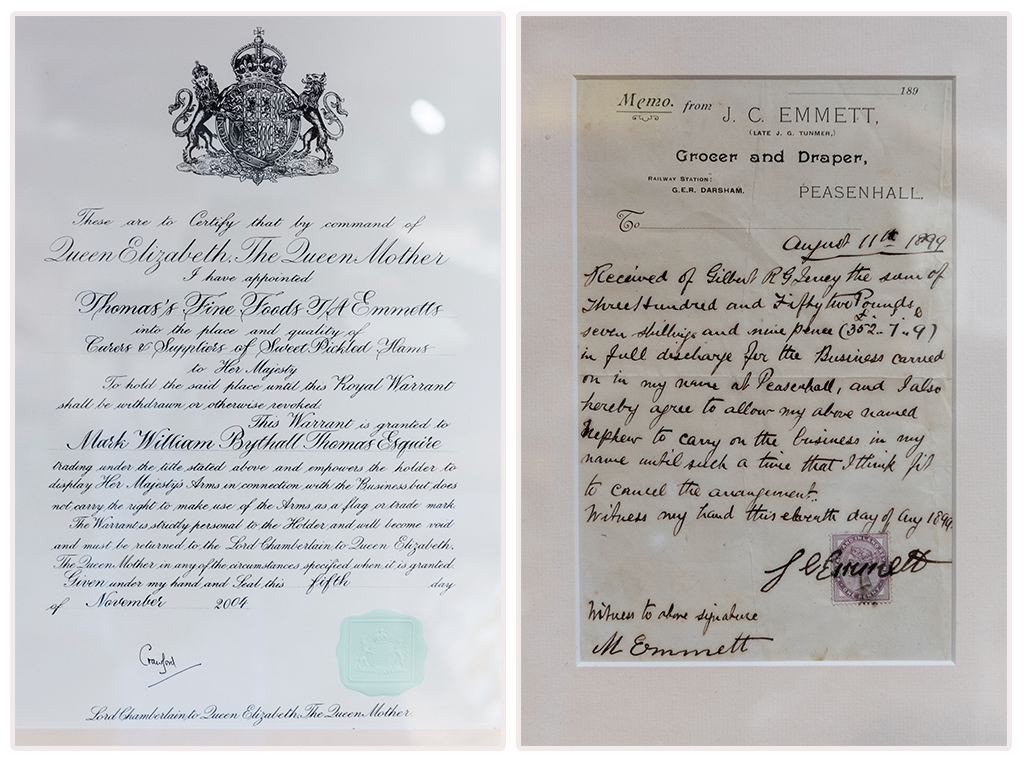 These are to Certify that by command of
Queen Elizabeth, The Queen Mother
I have appointed
Thomas's Fine Foods T/A Emmetts
into the place and quality of
Curers & Suppliers of Sweet Pickled Hams
to Her Majesty
To hold the said place until this Royal Warrant
shall be withdrawn or otherwise revoked.
This Warrant is granted to
Mark William Bythall Thomas Esquire
trading under the title stated above and empowers the holder to
display Her Majesty's Arms in connection with the Business but does
not carry the right to make use of the Arms as a flag or trade mark.
The Warrant is strictly personal to the Holder and will become void
and must be returned to the Lord Chamberlain to Queen Elizabeth,
The Queen Mother in any of the circumstances specified when it is granted.
Given under my hand and Seal this fifth day
of November 2004
Crawford
Lord Chamberlain to Queen Elizabeth, The Queen Mother.
189
Memo. from J. C. EMMETT,
(LATE J. G. TUNMER,)
Grocer and Draper,
RAILWAY STATION:
G.E.R. DARSHAM.
PEASENHALL.
To
August 11th 1899
Received of Gilbert R G the sum of
Three Hundred and Fifty two Pounds
seven shillings and nine pence (£352-7-9)
in full discharge for the Business carried
on in my name at Peasenhall, and I also
hereby agree to allow my above named
Nephew to carry on the business in my
name until such a time that I think fit
to cancel the arrangement.
Witness my hand this eleventh day of Aug 1899
J C Emmett
Witness to above signature
M Emmett